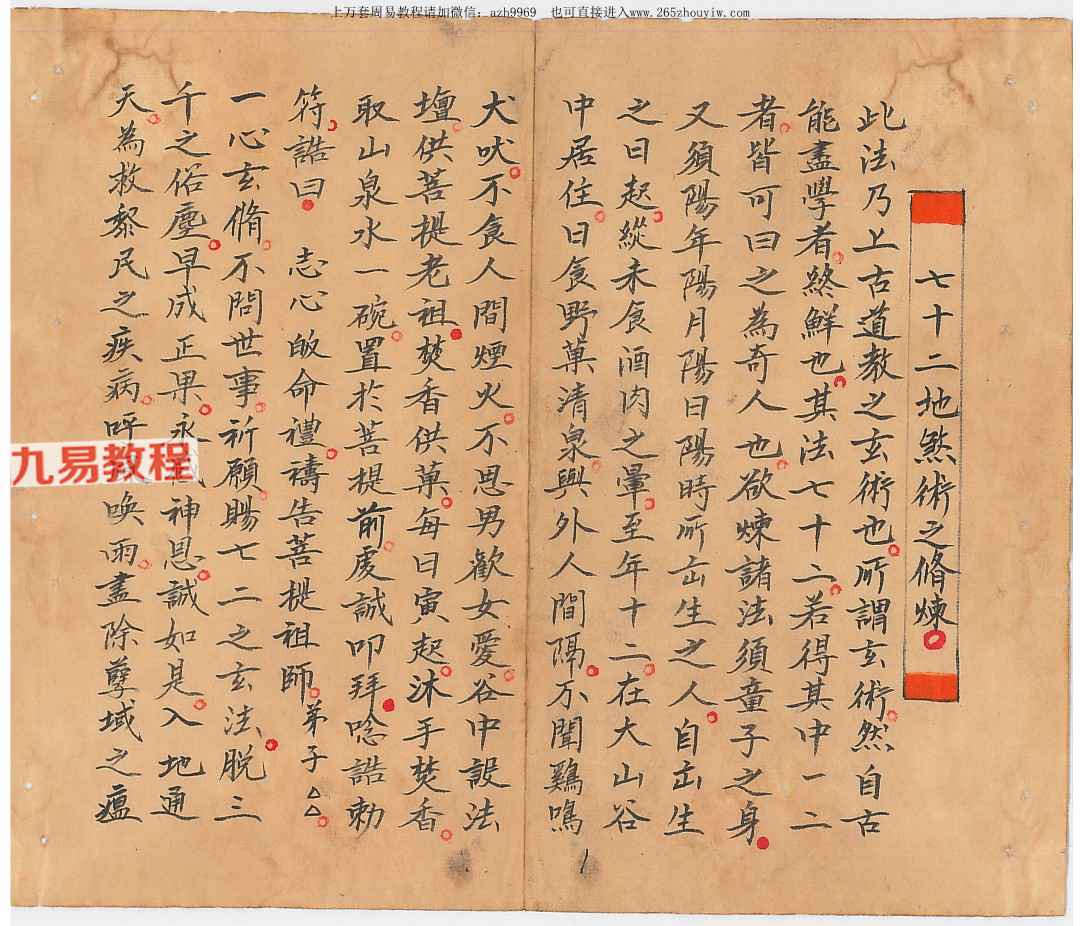 上万套周易教程请加微信：azh9969　也可直接进入www.265zhouyiw.com
七十二地煞術之脩煉
此法乃上古道教之玄術也所謂玄術然自古
能盡學者終鮮也其法七十二若得其中一二
者皆可曰之為奇人也欲煉諸法須童子之身
又須陽年陽月陽日陽時所㞮生之人自㞮生
之日起縱未食酒肉之暈至年十二在大山谷
中居住日食野菓清泉與外人間隔不聞鷄鳴
1
犬吠不食人間煙火不思男歡女愛谷中設法
壇供菩提老祖焚香供菓每日寅起沐手焚香
取山泉水一碗置於菩提前虔誠叩拜唸誥勅
符誥曰　志心皈命禮禱告菩提祖師弟子△△
一心玄脩不問世事祈願賜七二之玄法脫三
千之俗塵早成正果永 神恩誠如是入地通
天為救黎民之疾病呼 喚雨盡除孽域之瘟
九易教程